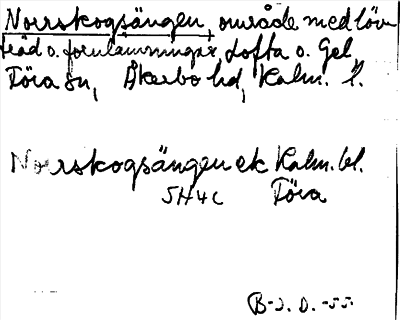 Norrskogsängen, område med löv
träd o. fornlämningar, Lofta o. Gel
Föra sn, Åkerbo hd, Kalm. l.
Norrskogsängen ek Kalm. bl.
5H4c Föra
B-J. D. -55